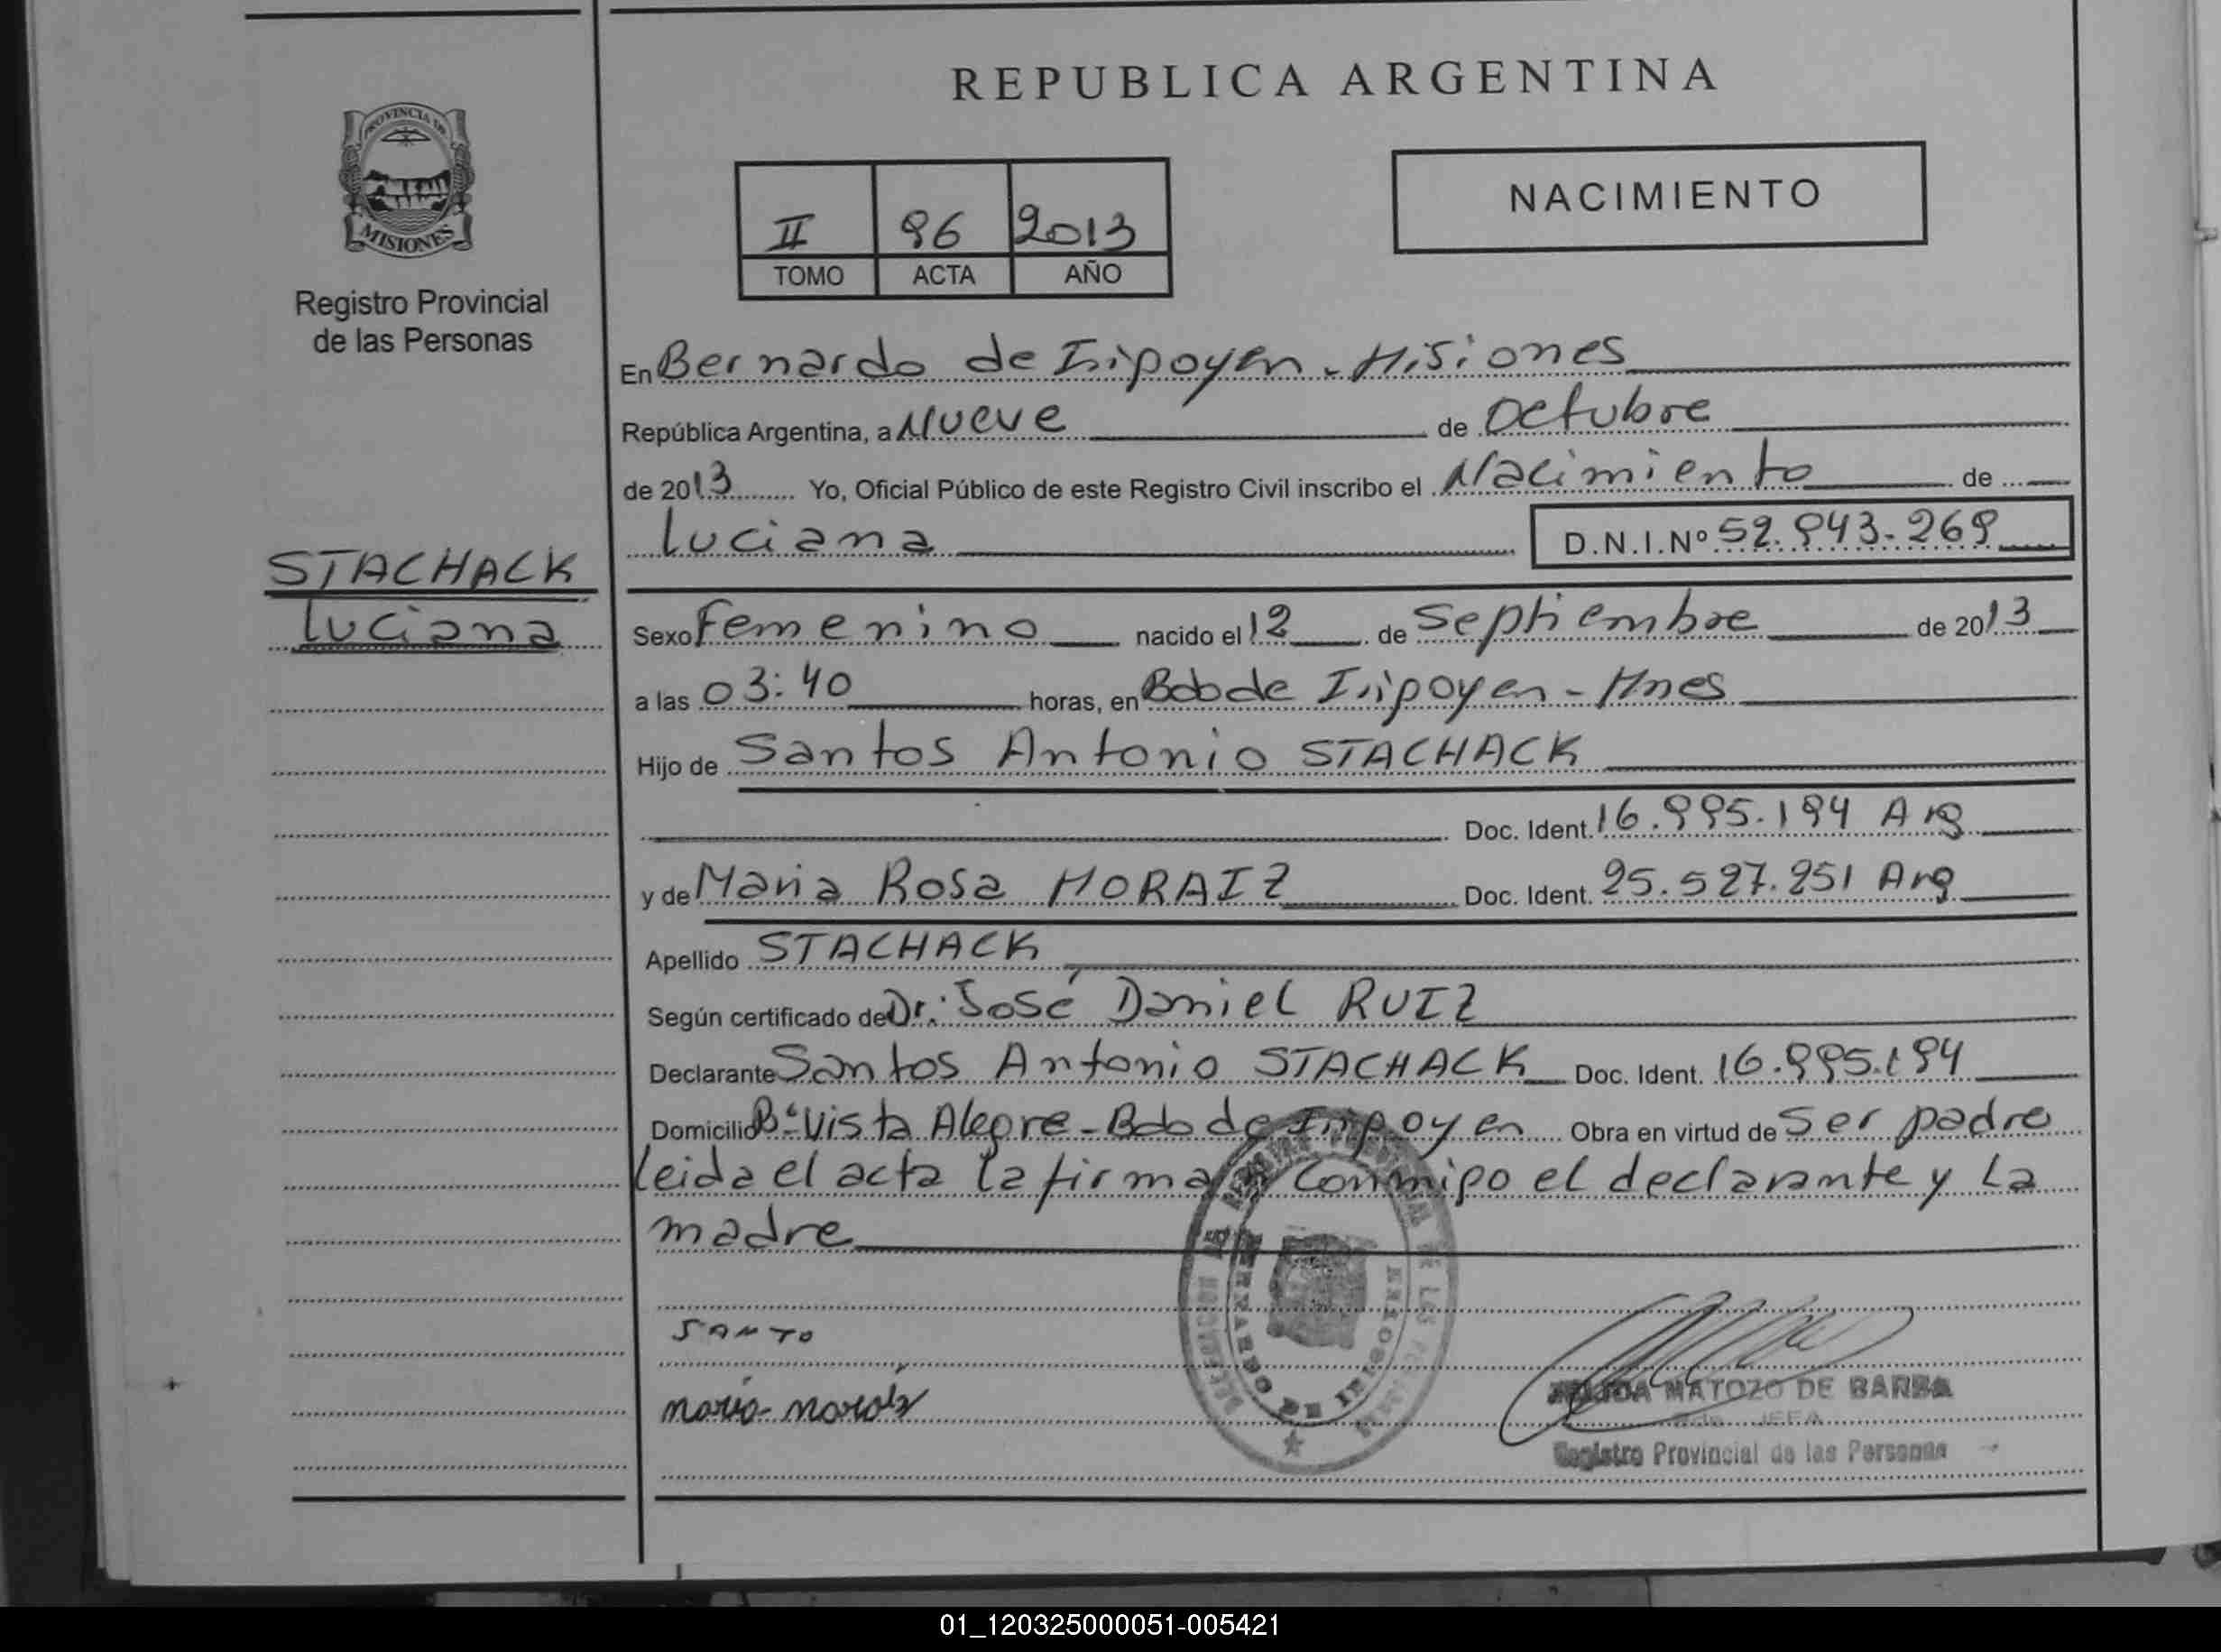 REPUBLICA ARGENTINA
PROVINCIA DE
MISIONES
Registro Provincial
de las Personas
NACIMIENTO
II 96 2013
TOMO ACTA AÑO
En Bernardo de Irigoyen - Misiones
República Argentina, a Nueve de Octubre
de 2013 Yo, Oficial Público de este Registro Civil inscribo el Nacimiento de
Luciana D.N.I.Nº 52.943.269
STACHACK
Luciana
Sexo Femenino nacido el 12 de Septiembre de 2013
a las 03:40 horas, en Bdo de Irigoyen - Mnes
Hijo de Santos Antonio STACHACK
Doc. Ident. 16.995.194 Arg
y de Maria Rosa MORAIZ Doc. Ident. 25.527.251 Arg
Apellido STACHACK
Según certificado de Dr: José Daniel RUIZ
Declarante Santos Antonio STACHACK Doc. Ident. 16.995.194
Domicilio Bº Vista Alegre - Bdo de Irigoyen Obra en virtud de Ser padre
leida el acta la firman conmigo el declarante y la
madre
SANTO
maria moraiz
MATOZO DE BARBA
JEFA
Registro Provincial de las Personas
01_120325000051-005421